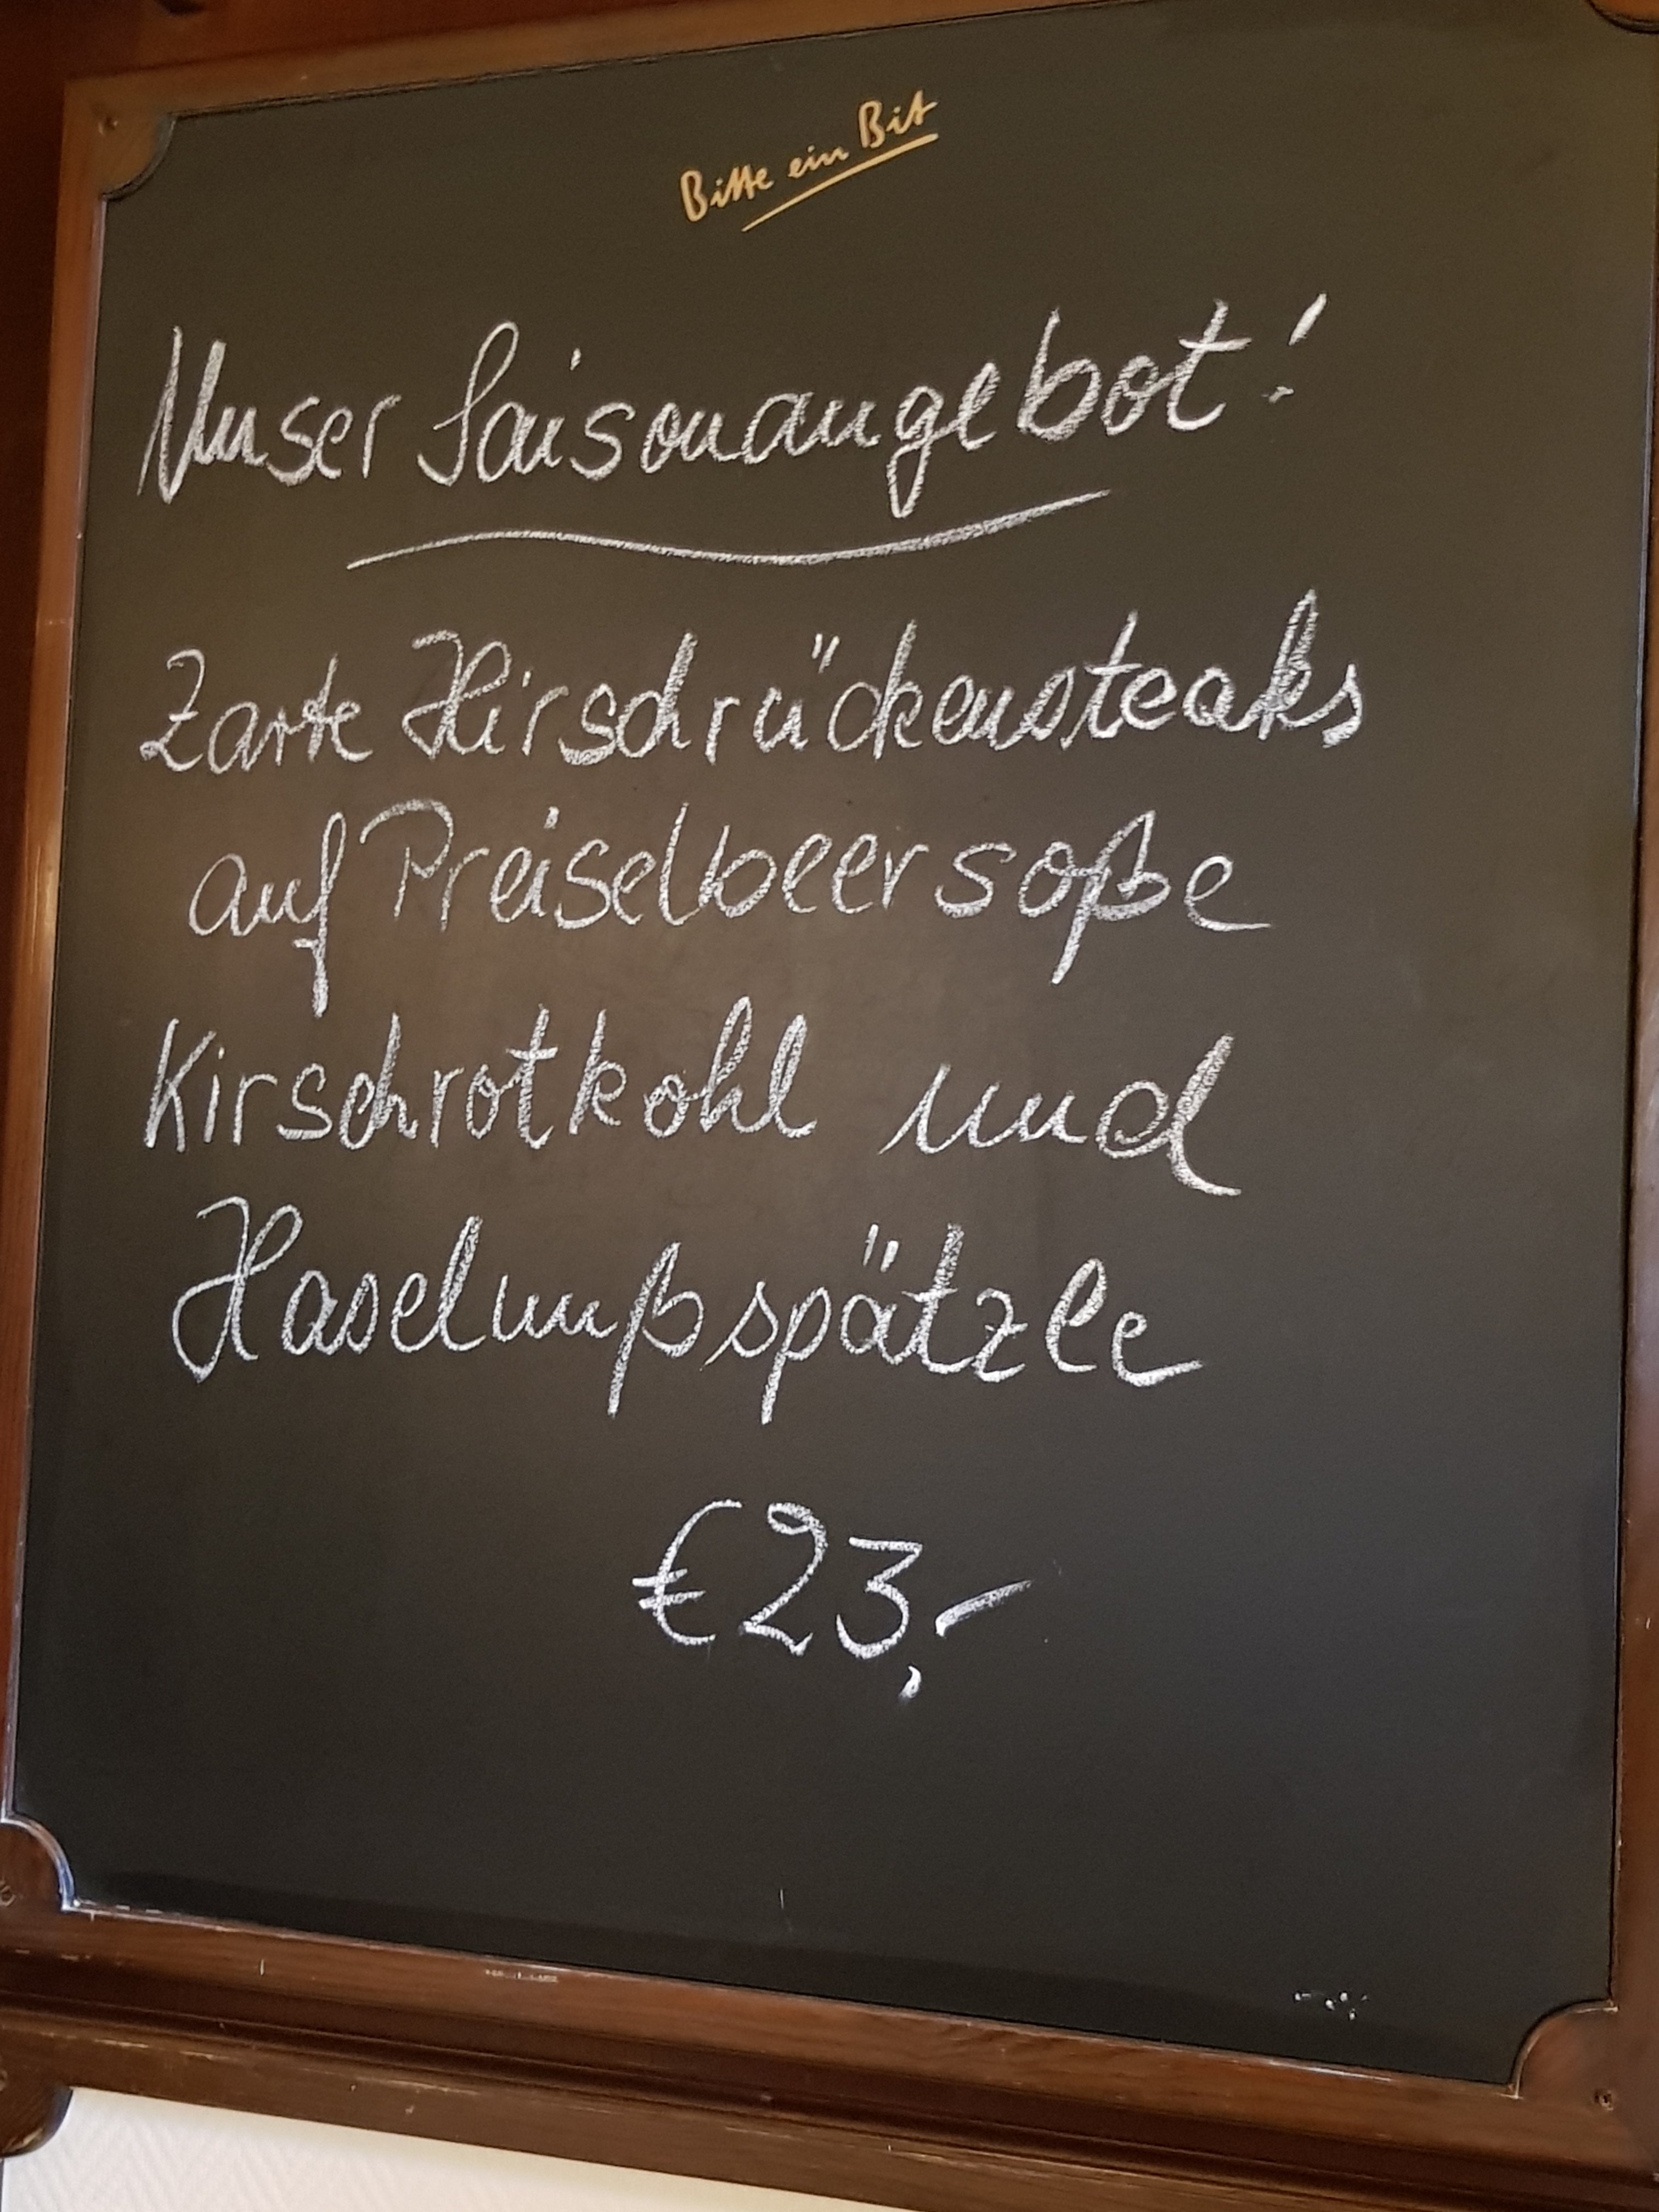 Bitte ein Bit
Unser Saisonangebot!
Zarte Hirschrückensteaks
auf Preiselbeersoße
Kirschrotkohl und
Haselnußspätzle
€23,-